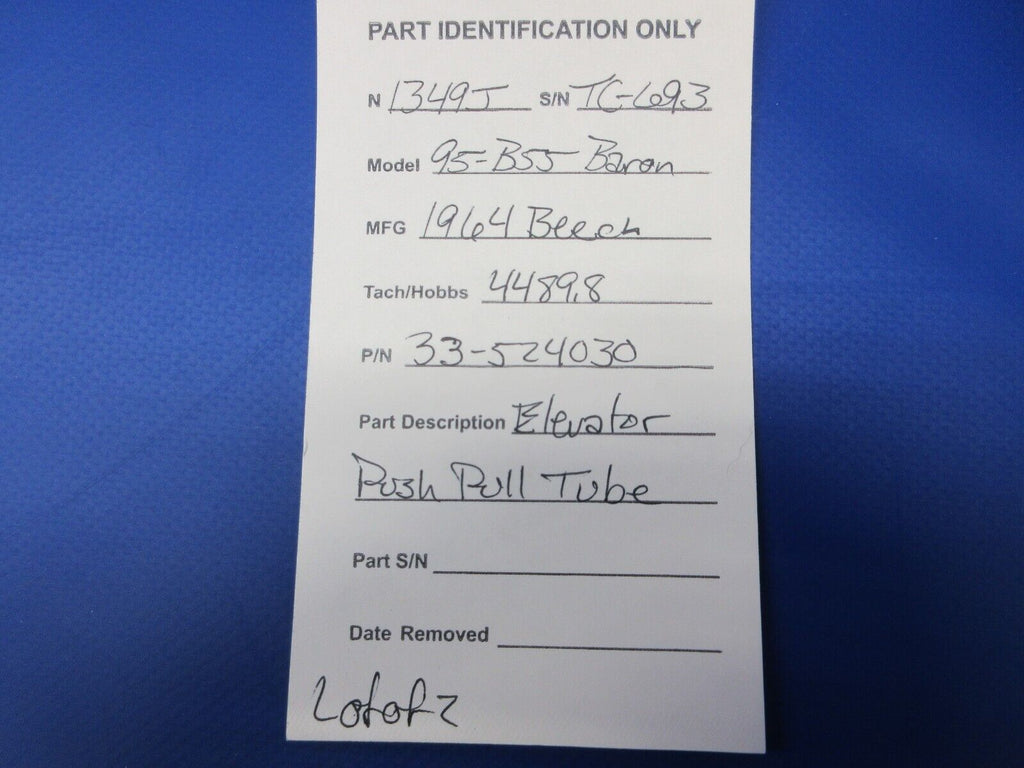 PART IDENTIFICATION ONLY
N 1349J S/N TC-693
Model 95-B55 Baron
MFG 1964 Beech
Tach/Hobbs 4489.8
P/N 33-524030
Part Description Elevator
Push Pull Tube
Part S/N
Date Removed
Lot of 2